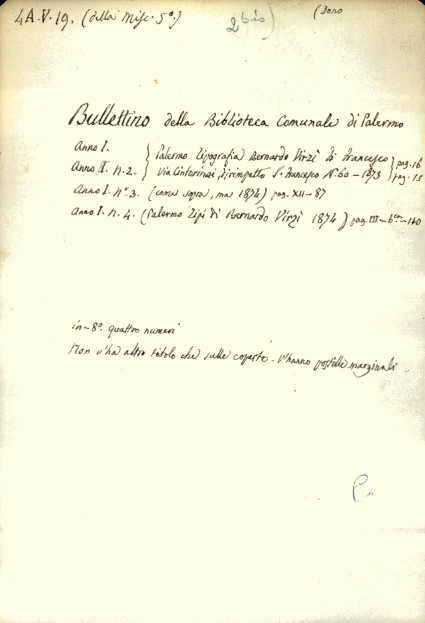 4A.V.19. (della Misc. 5º.)
2 bis)
(Dono
Bullettino della Biblioteca Comunale di Palermo
Anno I. } Palermo Tipografia Bernardo Virzì di Francesco } pag. 16
Anno I. n. 2. } Via Cintorinai, dirimpetto S. Francesco Nº 60 – 1873 } pag. 15
Anno I. nº 3. (come sopra, ma 1874) pag. XII – 87
Anno I. n. 4. (Palermo Tipi di Bernardo Virzì 1874) pag. III – 140
in – 8º. quattro numeri
Non v'ha altro titolo che sulle coperte – V'hanno postille marginali